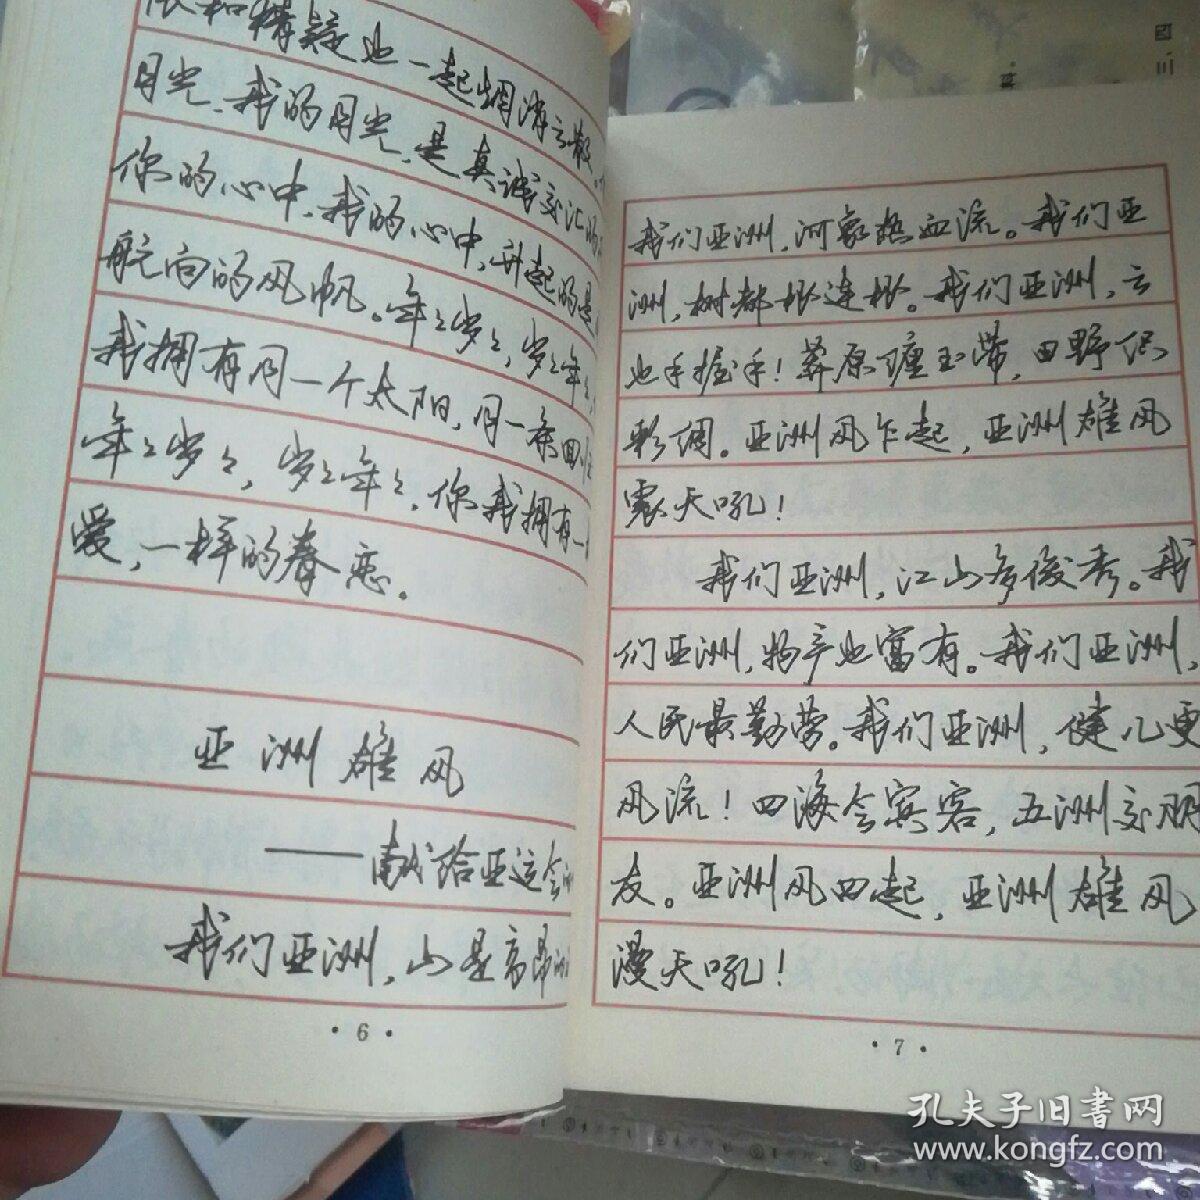 和精疑也一起烟消云散。
目光、我的目光,是真诚交汇的
你的心中、我的心中,升起的是
航向的风帆。年々岁々,岁々年々,
我拥有同一个太阳,同一条回归
年々岁々,岁々年々,你我拥有一
爱,一样的眷恋。
亚洲雄风
——献给亚运会
我们亚洲,山是高昂的
·6·
我们亚洲,河象热血流。我们亚
洲,树都根连根。我们亚洲,云
也手握手!莽原缠玉带,田野织
彩绸。亚洲风乍起,亚洲雄风
震天吼!
我们亚洲,江山多俊秀。我
们亚洲,物产也富有。我们亚洲,
人民最勤劳。我们亚洲,健儿更
风流!四海会宾客,五洲交朋
友。亚洲风四起,亚洲雄风
漫天吼!
·7·
孔夫子旧书网
www.kongfz.com